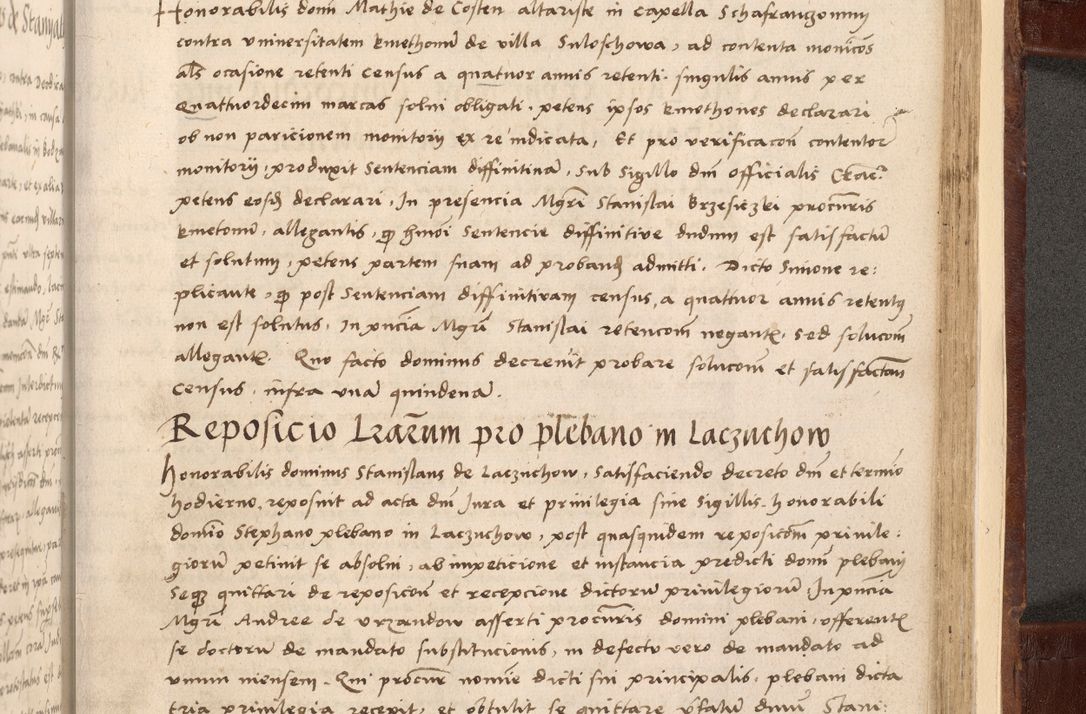 Honorabilis domī Mathie de Costen altariste in capella Schafranczonum
contra vniuersitatem kmethonū de villa Suloschowa, ad contenta monicōs
als ocasione retenti census a quatuor annis retenti. singulis annis per
quattuordecim marcas solui obligati. petens ipsos kmethones declarari
ob non paricionem monitorij ex re iudicata, Et pro verificacōn contentor
monitorij, produxit Sententiam diffinitiuā, Sub Sigillo dm̄ officialis
petens eosdē declarari, In presencia Mgrī Stanislai Brzesiczki procūris
kmetonū, allegantis, qp hmōi Sentencie diffinitive dudum est satisfactū
et solutum, petens partem suam ad probandū admitti. Dicto Simone re:
plicante, qp post Sentenciam diffinitivam census, a quattuor annis retentus
non est solutus. In pn̄cia Mgrī Stanislai retencōm negantē. sed solucōm
allegantē. Quo facto dominus decreuit probare solucōm et satisfactōm
census. infra vnā quindenā.
Reposicio Lrārum pro plebano in Laczuchow
Honorabilis dominus Stanislaus de Laczuchow, Satisfaciendo decreto dm̄ et termīo
hodierno, reposuit ad acta dm̄ Jura et priuilegia siue Sigillis. honorabili
domīo Stephano plebano in Laczuchow, post quasquidem reposicōm priuile:
giorū petiuit se absolui, ab impeticione et instancia predicti domī plebani
Seqz quittari de reposicōm et recepcione dictorū priuilegiorū. In pn̄cia
Mgrī Andree de Vrzandow asserti procūris domini plebani, offerentē
se docturū de mandato substitucionis, in defectu vero de mandato ad
vnum mensem. Qui procūr nomīe dicti sui principalis. plebani dicta
tria priuilegia recepit, et obtulit se quittare pfatū dnūm Stani: